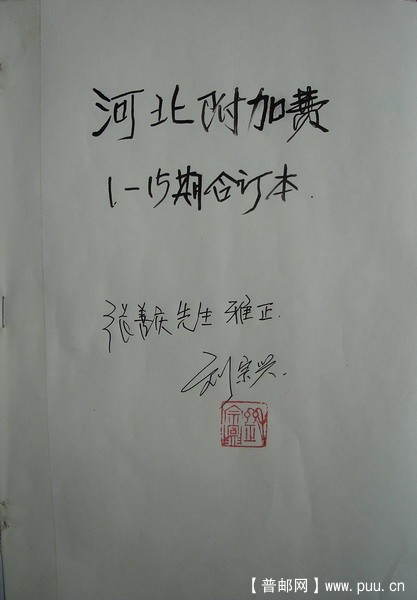 河北附加费
1-15期合订本.
张善庆先生 雅正.
刘宗兴.
【普邮网】www.puu.cn